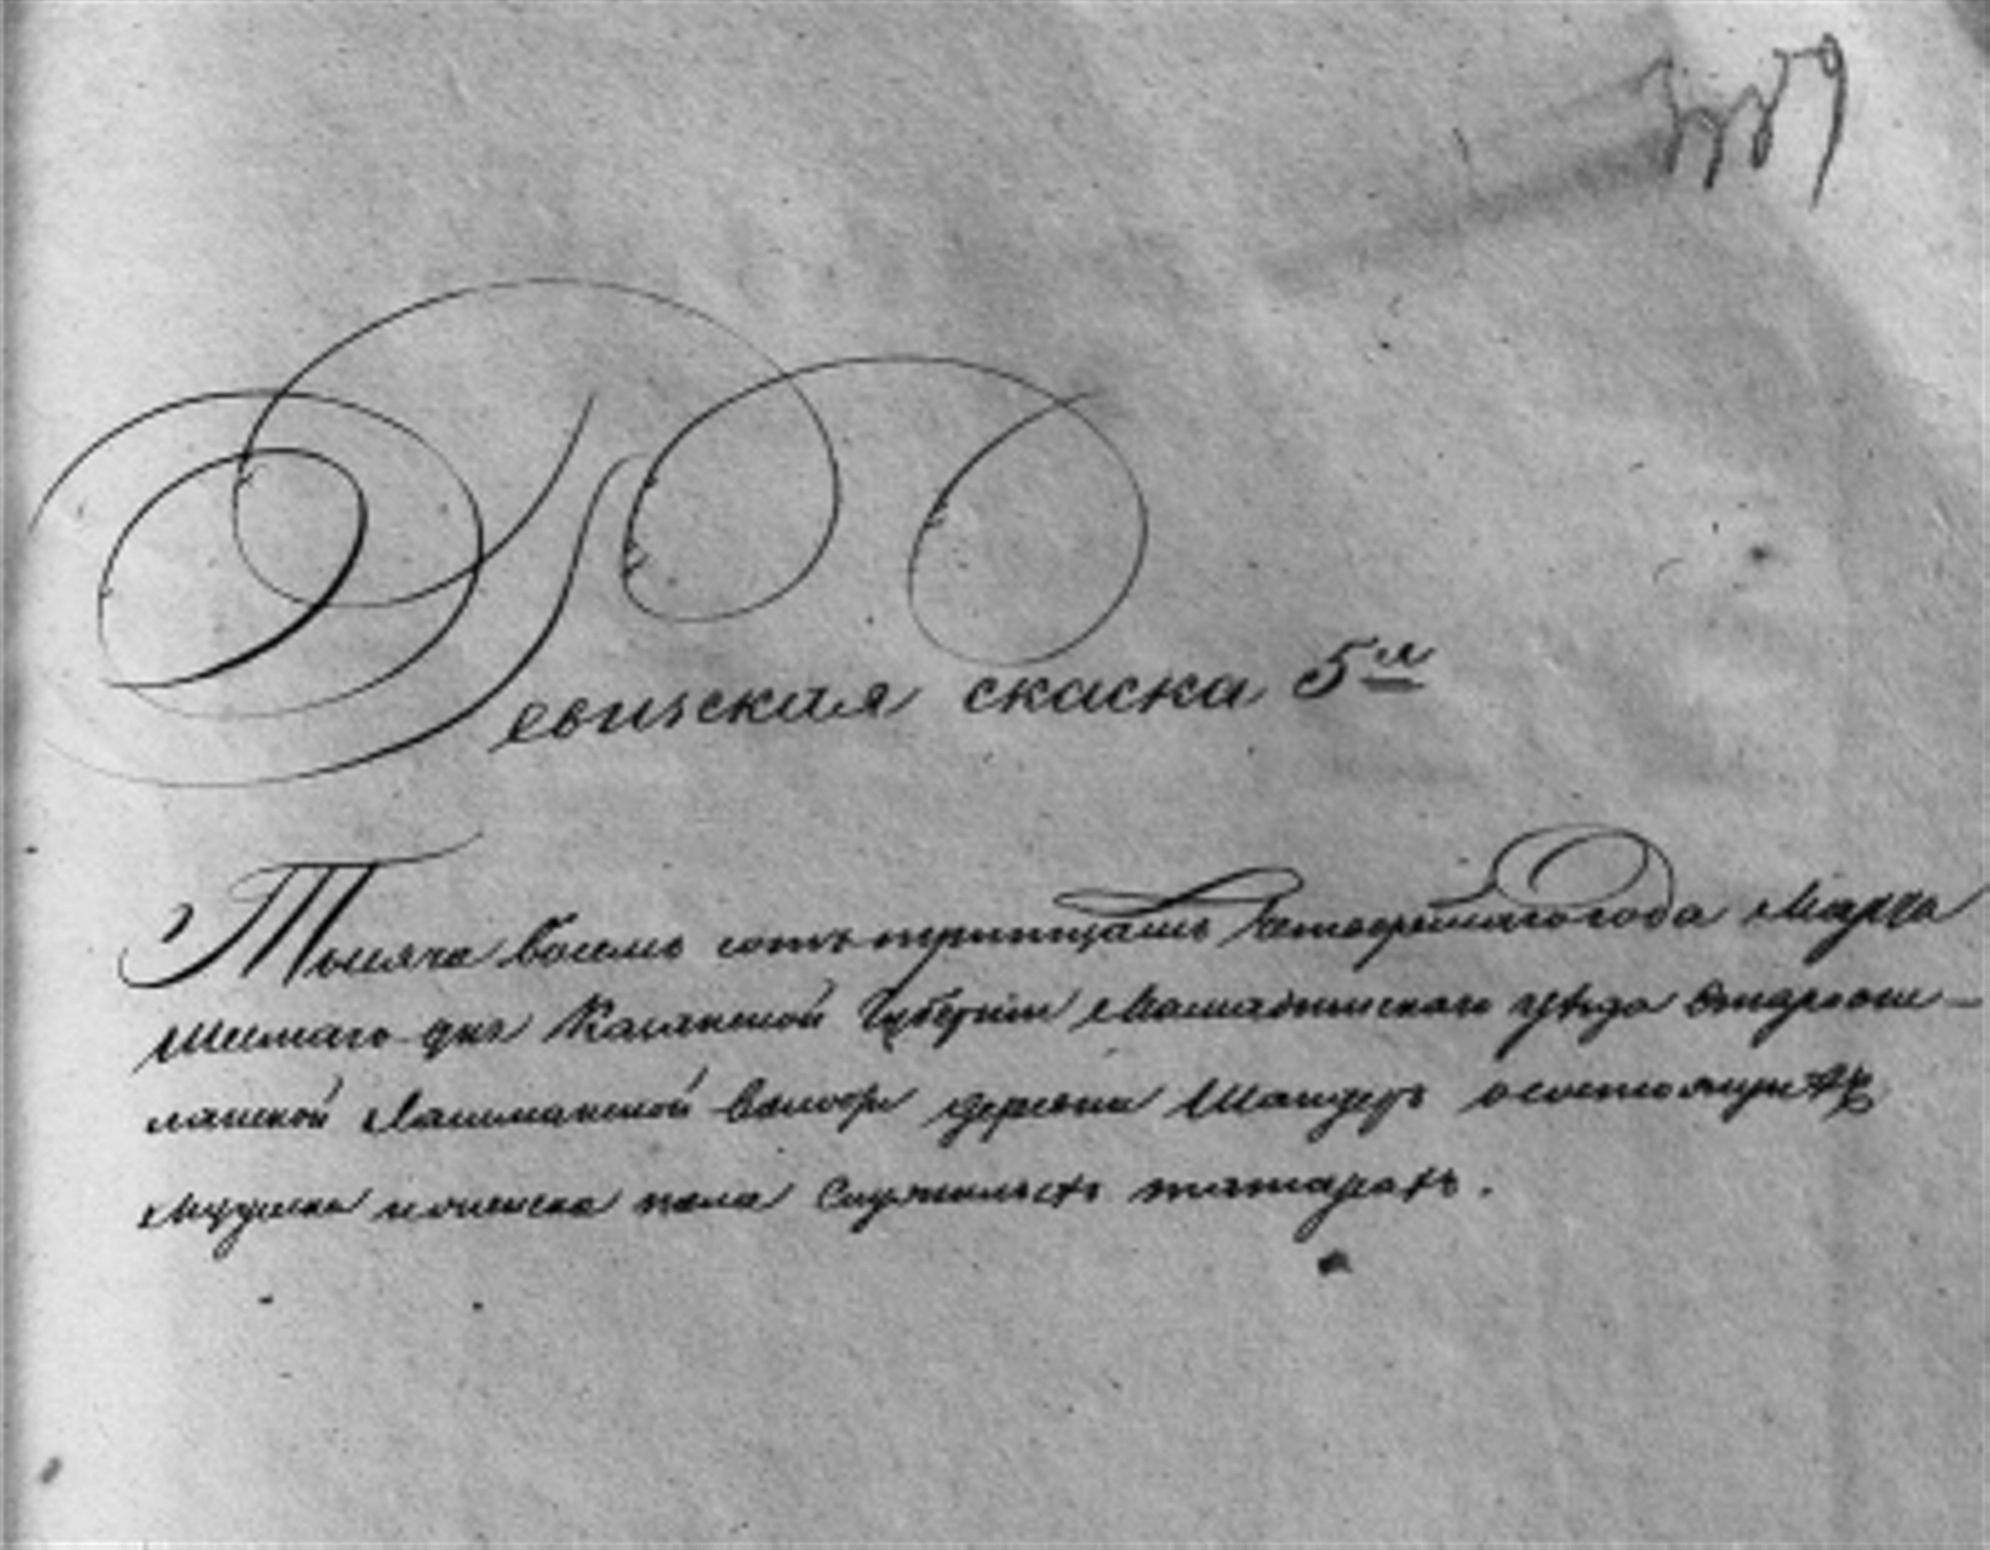 Ревизская скаска 5я
Тысяча восемь сотъ тритцать четвертаго года Марта
Шестаго дня Казанской Губернiи Мамадышскаго уѣзда
Лашманской волости деревни Шандеръ о состоящихъ
Мужеска и женска пола Служилыхъ татарахъ.